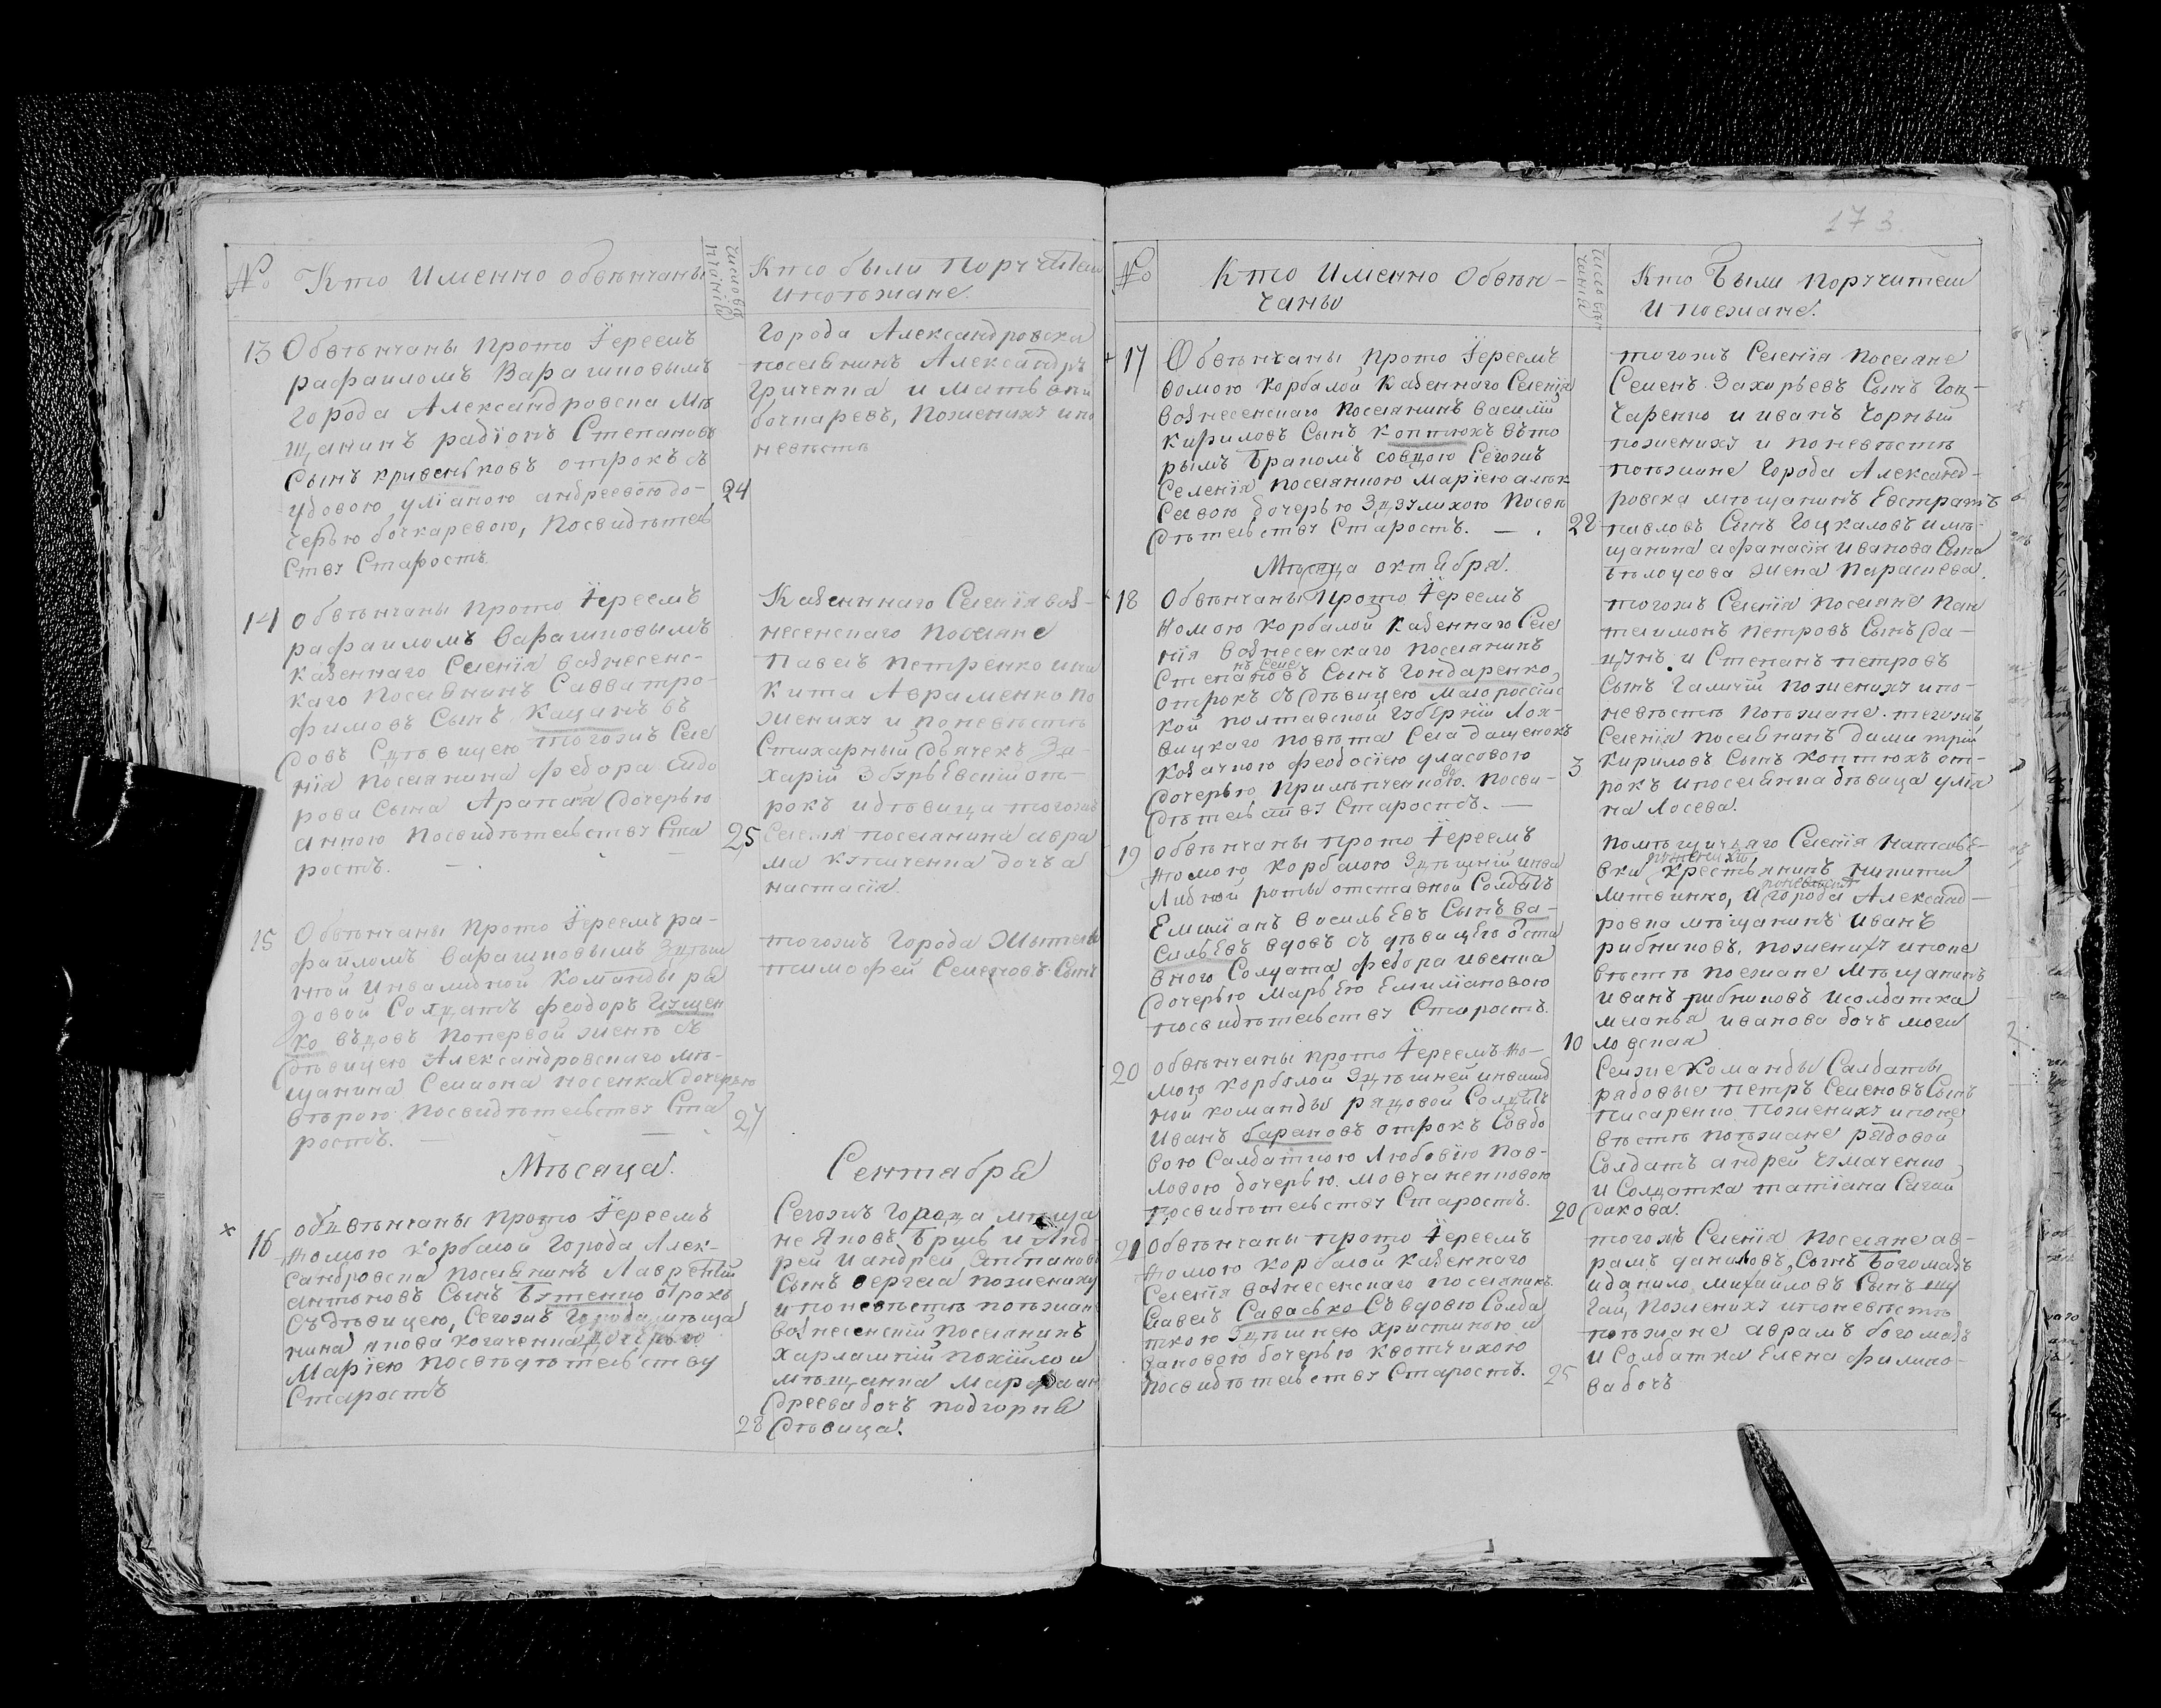 173
№ Кто Именно обвѣнчаны
Числова
нчанiй
Кто были Поручители
ипоѣзжане.
13 Обвѣнчаны Прото Іереемъ
рафаиломъ Варагиновымъ
города Александровска Мѣ
щанинъ радіонъ Степановъ
Сынъ кривеньковъ отрокъ съ
удовою уліаною андреевою до-
черью бочкаревою, Посвидѣтель
Ству Старостъ
24
Города Александровска
поселянинъ Александръ
Гриченка и Матвѣй
бочкаревъ, Поженихѵ ипо
невѣстѣ
14 Обвѣнчаны Прото Іереемъ
рафаиломъ Варагиновымъ
Казеннаго Селенія вознесенс-
каго Поселянинъ Савва тро-
фимовъ Сынъ Кацанъ въ
довъ Сдѣвицею тогожъ Селе
нія поселянина федора Сидо
рова Сына Арапая дочерью
анною Посвидѣтельству Ста
ростъ.
25
Казеннаго Селенія воз-
несенскаго Поселяне
Павелъ Петренко ини
кита Авраменко по
жениху и поневѣстѣ
Стихарный дьячекъ За-
харій Збурьевскій от-
рокъ идѣвица тогожъ
Селенія поселянина авра
ма дочь а
настасія.
15 Обвѣнчаны Прото Іереемъ ра-
фаиломъ варагиновымъ Здѣш
ней Инвалидной Команды ря
довой Солдатъ феодоръ Гущен
ко вдовъ Попервой женѣ съ
дѣвицею Александровскаго мѣ-
щанина Семиона носенка дочерью
второю Посвидѣтельству Ста
ростъ.
27
тогожъ Города Жители
тимофей Семеновъ Сынъ
Мѣсяца. Сентабря
16 обвѣнчаны прото Іереемъ
Фомою Корбалой города Алек-
сандровска поселянинъ Лаврентий
антоновъ Сынъ Бутенко отрокъ
Съдѣвицею, Сегожъ Города мѣща
нина якова когаченка дочерью
Маріею посвидѣтельству
Старостъ
28
Сегожъ города мѣща
не Яковъ Брусъ и Анд
рей и андрей Степановъ
Сынъ Сергеа поженихѵ
и поневѣстѣ поѣзжан
вознесенскій Поселянинъ
харлампій похиило и
мѣщанка Марфа ан
дреева дочь подгорня
дѣвица.
№ Кто Именно Обвѣн-
чаны
Кто Были Поручители
и поезжане.
17 Обвѣнчаны Прото Іереемъ
Фомою Корбалой Казеннаго Селенія
вознесенскаго Поселянинъ василій
Кириловъ Сынъ коптюхъ вто
рымъ Бракомъ совдою Сегожъ
Селенія поселянкою Маріею алек
Сеевою дочерью Здзулихою Посви
дѣтельству Старостъ. —
28
тогожъ Селенія Поселяне
Семенъ Захарьевъ Сынъ Гон-
Чаренко и иванъ Чорный
поженихѵ и поневѣстѣ
поѣзжане города Александ-
ровска мѣщанинъ Евстратъ
павловъ Сынъ Гоцкаловъ имѣ-
щанина афанасія иванова Сына
бѣлоусова жена Параскева.
Мѣсяца октября.
18 Обвѣнчаны Прото Іереемъ
Фомою Корбалой Казеннаго Селе
нія вознесенскаго поселянинъ
нъ Семе
Степановъ Сынъ Гондаренко,
отрокъ съ дѣвицею Малороссійс
кой полтавской губерніи Лох-
вицкаго повѣта Села дащенокъ
Козачкою феодосіею уласовою
дочерью Примѣченковою. Посви-
дѣтельству Старостъ. —
3
тогожъ Селенія поселяне Пан
телимонъ Петровъ Сынъ да-
цунъ и Степанъ петровъ
Сынъ Галичій поженихѵ ипо-
невѣстѣ поѣзжане. тогожъ
Селенія поселянинъ димитрій
Кириловъ Сынъ коптюхъ от-
рокъ ипоселянка дѣвица улія
на Лосева.
19 обвѣнчаны прото Іереемъ
Фомою Корбалою Здѣшней инва
лидной роты отставной Солдатъ
Емиліанъ васильевъ Сынъ ва-
сильевъ вдовъ съ дѣвицею отста
вного Солдата федора ивенка
дочерью Марьею Емиліановою
посвидѣтельству Старостъ.
10
помѣщичьяго Селенія Наталье-
поженихѵ
вки крестьянинъ никита
поневѣстѣ
литвинко, и города Александ-
ровка мѣщанинъ Иванъ
рибниковъ, поженихѵ ипоне
вѣстѣ поезжане Мѣщанинъ
иванъ рибниковъ исолдатка
меланья иванова дочь моги
ловская
20 обвѣнчаны прото Іереемъ Фо-
мою Корбалой Здѣшней инвалид
ной команды рядовой Солдатъ
Иванъ барановъ отрокъ Совдо
вою Салдаткою Любовію Пав-
ловою дочерью. мовчанениковою
посвидѣтельству Старостъ.
20
Сейже Команды Салдаты
рядовые петръ Семеновъ Сынъ
писаренко поженихѵ ипоне
вѣстѣ поѣзжане рядовой
Солдатъ андрей Чумаченко
и Солдатка татіана Сагай
дакова.
21 Обвѣнчаны прото Іереемъ
Фомою Корбалой Казеннаго
Селенія вознесенскаго поселянинъ
Павелъ Саваско Съвдовою Солда
ткою Здѣшнею христиною и
вановою дочерью Квотчихою
Посвидѣтельству Старостъ.
25
тогожъ Селенія Поселяне ав-
рамъ даниловъ, Сынъ Богомазъ
иданило, михайловъ Сынъ шу
гай, Поженихѵ ипоневѣстѣ
поѣзжане аврамъ богомазъ
и Солдатка Елена филипо-
ва дочь